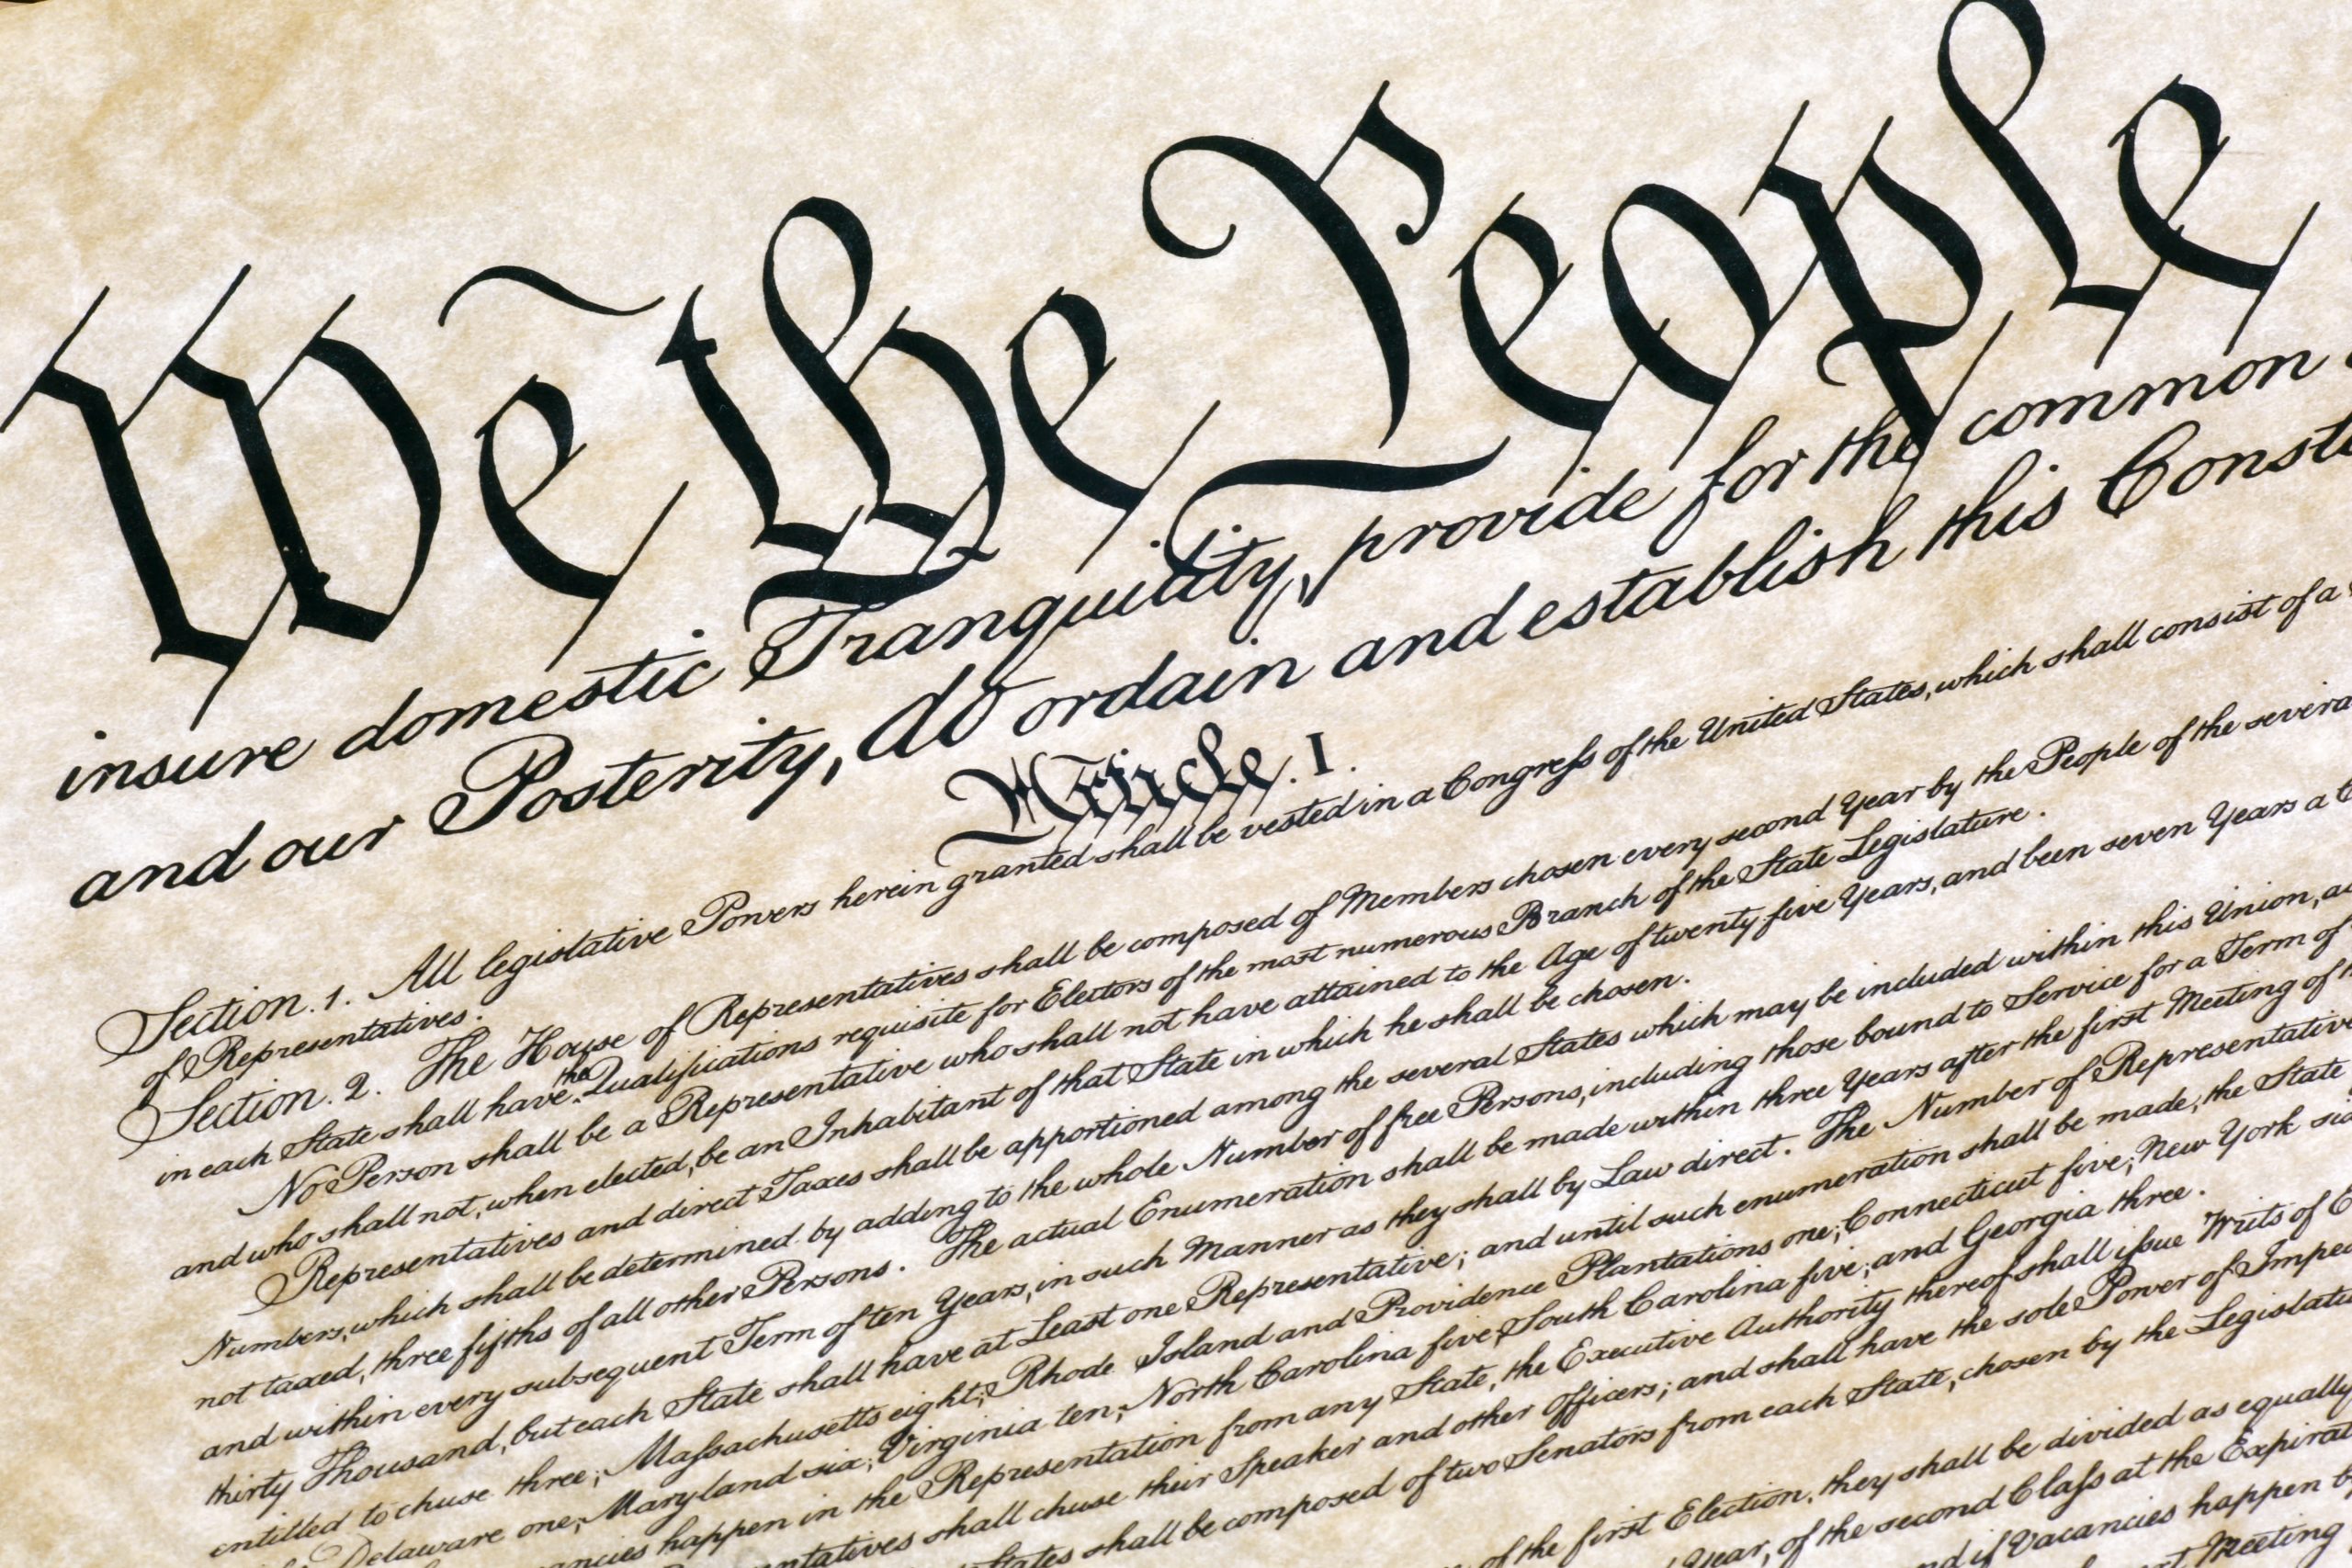 We the People
insure domestic Tranquility, provide for the common
and our Posterity, do ordain and establish this Const
Article. I.
Section. 1. All legislative Powers herein granted shall be vested in a Congress of the United States, which shall consist of a
of Representatives.
Section. 2. The House of Representatives shall be composed of Members chosen every second Year by the People of the severa
in each State shall have the Qualifications requisite for Electors of the most numerous Branch of the State Legislature.
No Person shall be a Representative who shall not have attained to the Age of twenty five Years, and been seven Years a
and who shall not, when elected, be an Inhabitant of that State in which he shall be chosen.
Representatives and direct Taxes shall be apportioned among the several States which may be included within this Union, ac
Numbers, which shall be determined by adding to the whole Number of free Persons, including those bound to Service for a Term of
not taxed, three fifths of all other Persons. The actual Enumeration shall be made within three Years after the first Meeting of
and within every subsequent Term of ten Years, in such Manner as they shall by Law direct. The Number of Representative
thirty Thousand, but each State shall have at Least one Representative; and until such enumeration shall be made, the State
entitled to chuse three; Massachusetts eight; Rhode Island and Providence Plantations one; Connecticut five; New York six
Delaware one; Maryland six; Virginia ten; North Carolina five; South Carolina five; and Georgia three.
ancies happen in the Representation from any State, the Executive Authority thereof shall issue Writs of
ntatives shall chuse their Speaker and other Officers; and shall have the sole Power of Impe
States shall be composed of two Senators from each State, chosen by the Legislatu
of the first Election, they shall be divided as equally
Year, of the second Class at the Expirat
nd if Vacancies happen
Meeting